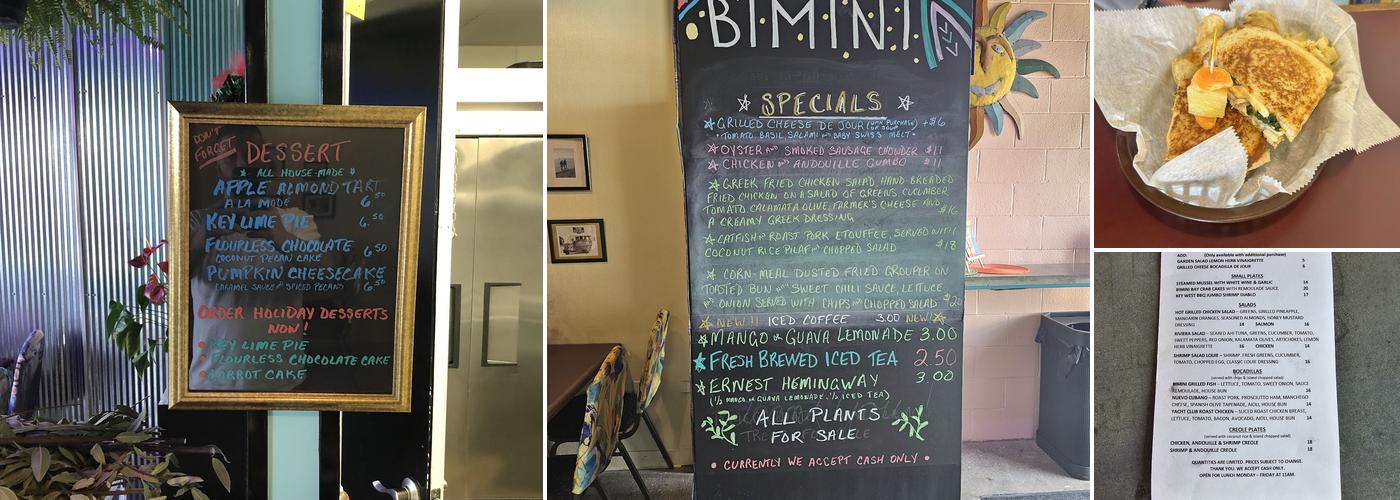 DON'T
FORGET
DESSERT
ALL HOUSE-MADE
APPLE ALMOND TART
A LA MODE 6.50
KEY LIME PIE 6.50
FLOURLESS CHOCOLATE 6.50
COCONUT PECAN CAKE
PUMPKIN CHEESECAKE
CARAMEL SAUCE AND SPICED PECANS 6.50
ORDER HOLIDAY DESSERTS
NOW!
KEY LIME PIE
FLOURLESS CHOCOLATE CAKE
CARROT CAKE
BIMINI
SPECIALS
GRILLED CHEESE DE JOUR (W/ PURCHASE) +$6
TOMATO, BASIL, SALAMI AND BABY SWISS MELT
OYSTER AND SMOKED SAUSAGE CHOWDER $11
CHICKEN AND ANDOUILLE GUMBO $11
GREEK FRIED CHICKEN SALAD, HAND-BREADED
FRIED CHICKEN ON A SALAD OF GREENS, CUCUMBER,
TOMATO, CALAMATA OLIVE, FARMER'S CHEESE AND
A CREAMY GREEK DRESSING $16
CATFISH AND ROAST PORK ETOUFFEE, SERVED WITH
COCONUT RICE PILAF AND CHOPPED SALAD $18
CORN-MEAL DUSTED FRIED GROUPER ON
TOASTED BUN WITH SWEET CHILI SAUCE, LETTUCE
AND ONION SERVED WITH CHIPS AND CHOPPED SALAD $20
NEW!! ICED COFFEE 3.00 NEW
MANGO OR GUAVA LEMONADE 3.00
FRESH BREWED ICED TEA 2.50
ERNEST HEMINGWAY 3.00
(½ MANGO OR GUAVA LEMONADE, ½ ICED TEA)
ALL PLANTS
FOR SALE
• CURRENTLY WE ACCEPT CASH ONLY •
ADD: (Only available with additional purchase)
GARDEN SALAD LEMON HERB VINAIGRETTE 5
GRILLED CHEESE BOCADILLA DE JOUR 6
SMALL PLATES
STEAMED MUSSEL WITH WHITE WINE & GARLIC 14
BIMINI BAY CRAB CAKES WITH REMOULADE SAUCE 20
KEY WEST BBQ JUMBO SHRIMP DIABLO 17
SALADS
HOT GRILLED CHICKEN SALAD – GREENS, GRILLED PINEAPPLE,
MANDARIN ORANGES, SEASONED ALMONDS, HONEY MUSTARD
DRESSING 14 SALMON 16
RIVIERA SALAD – SEARED AHI TUNA, GREENS, CUCUMBER, TOMATO,
SWEET PEPPERS, RED ONION, KALAMATA OLIVES, ARTICHOKES, LEMON
HERB VINAIGRETTE 16 CHICKEN 14
SHRIMP SALAD LOUIE – SHRIMP, FRESH GREENS, CUCUMBER,
TOMATO, CHOPPED EGG, CLASSIC LOUIE DRESSING 16
BOCADILLAS
(served with chips & island chopped salad)
BIMINI GRILLED FISH – LETTUCE, TOMATO, SWEET ONION, SAUCE
REMOULADE, HOUSE BUN 16
NUEVO CUBANO – ROAST PORK, PROSCIUTTO HAM, MANCHEGO
CHEESE, SPANISH OLIVE TAPENADE, AIOLI, HOUSE BUN 14
YACHT CLUB ROAST CHICKEN – SLICED ROAST CHICKEN BREAST,
LETTUCE, TOMATO, BACON, AVOCADO, AIOLI, HOUSE BUN 14
CREOLE PLATES
(served with coconut rice & island chopped salad)
CHICKEN, ANDOUILLE & SHRIMP CREOLE 18
SHRIMP & ANDOUILLE CREOLE 18
QUANTITIES ARE LIMITED. PRICES SUBJECT TO CHANGE.
THANK YOU. WE ACCEPT CASH ONLY.
OPEN FOR LUNCH MONDAY – FRIDAY AT 11AM.